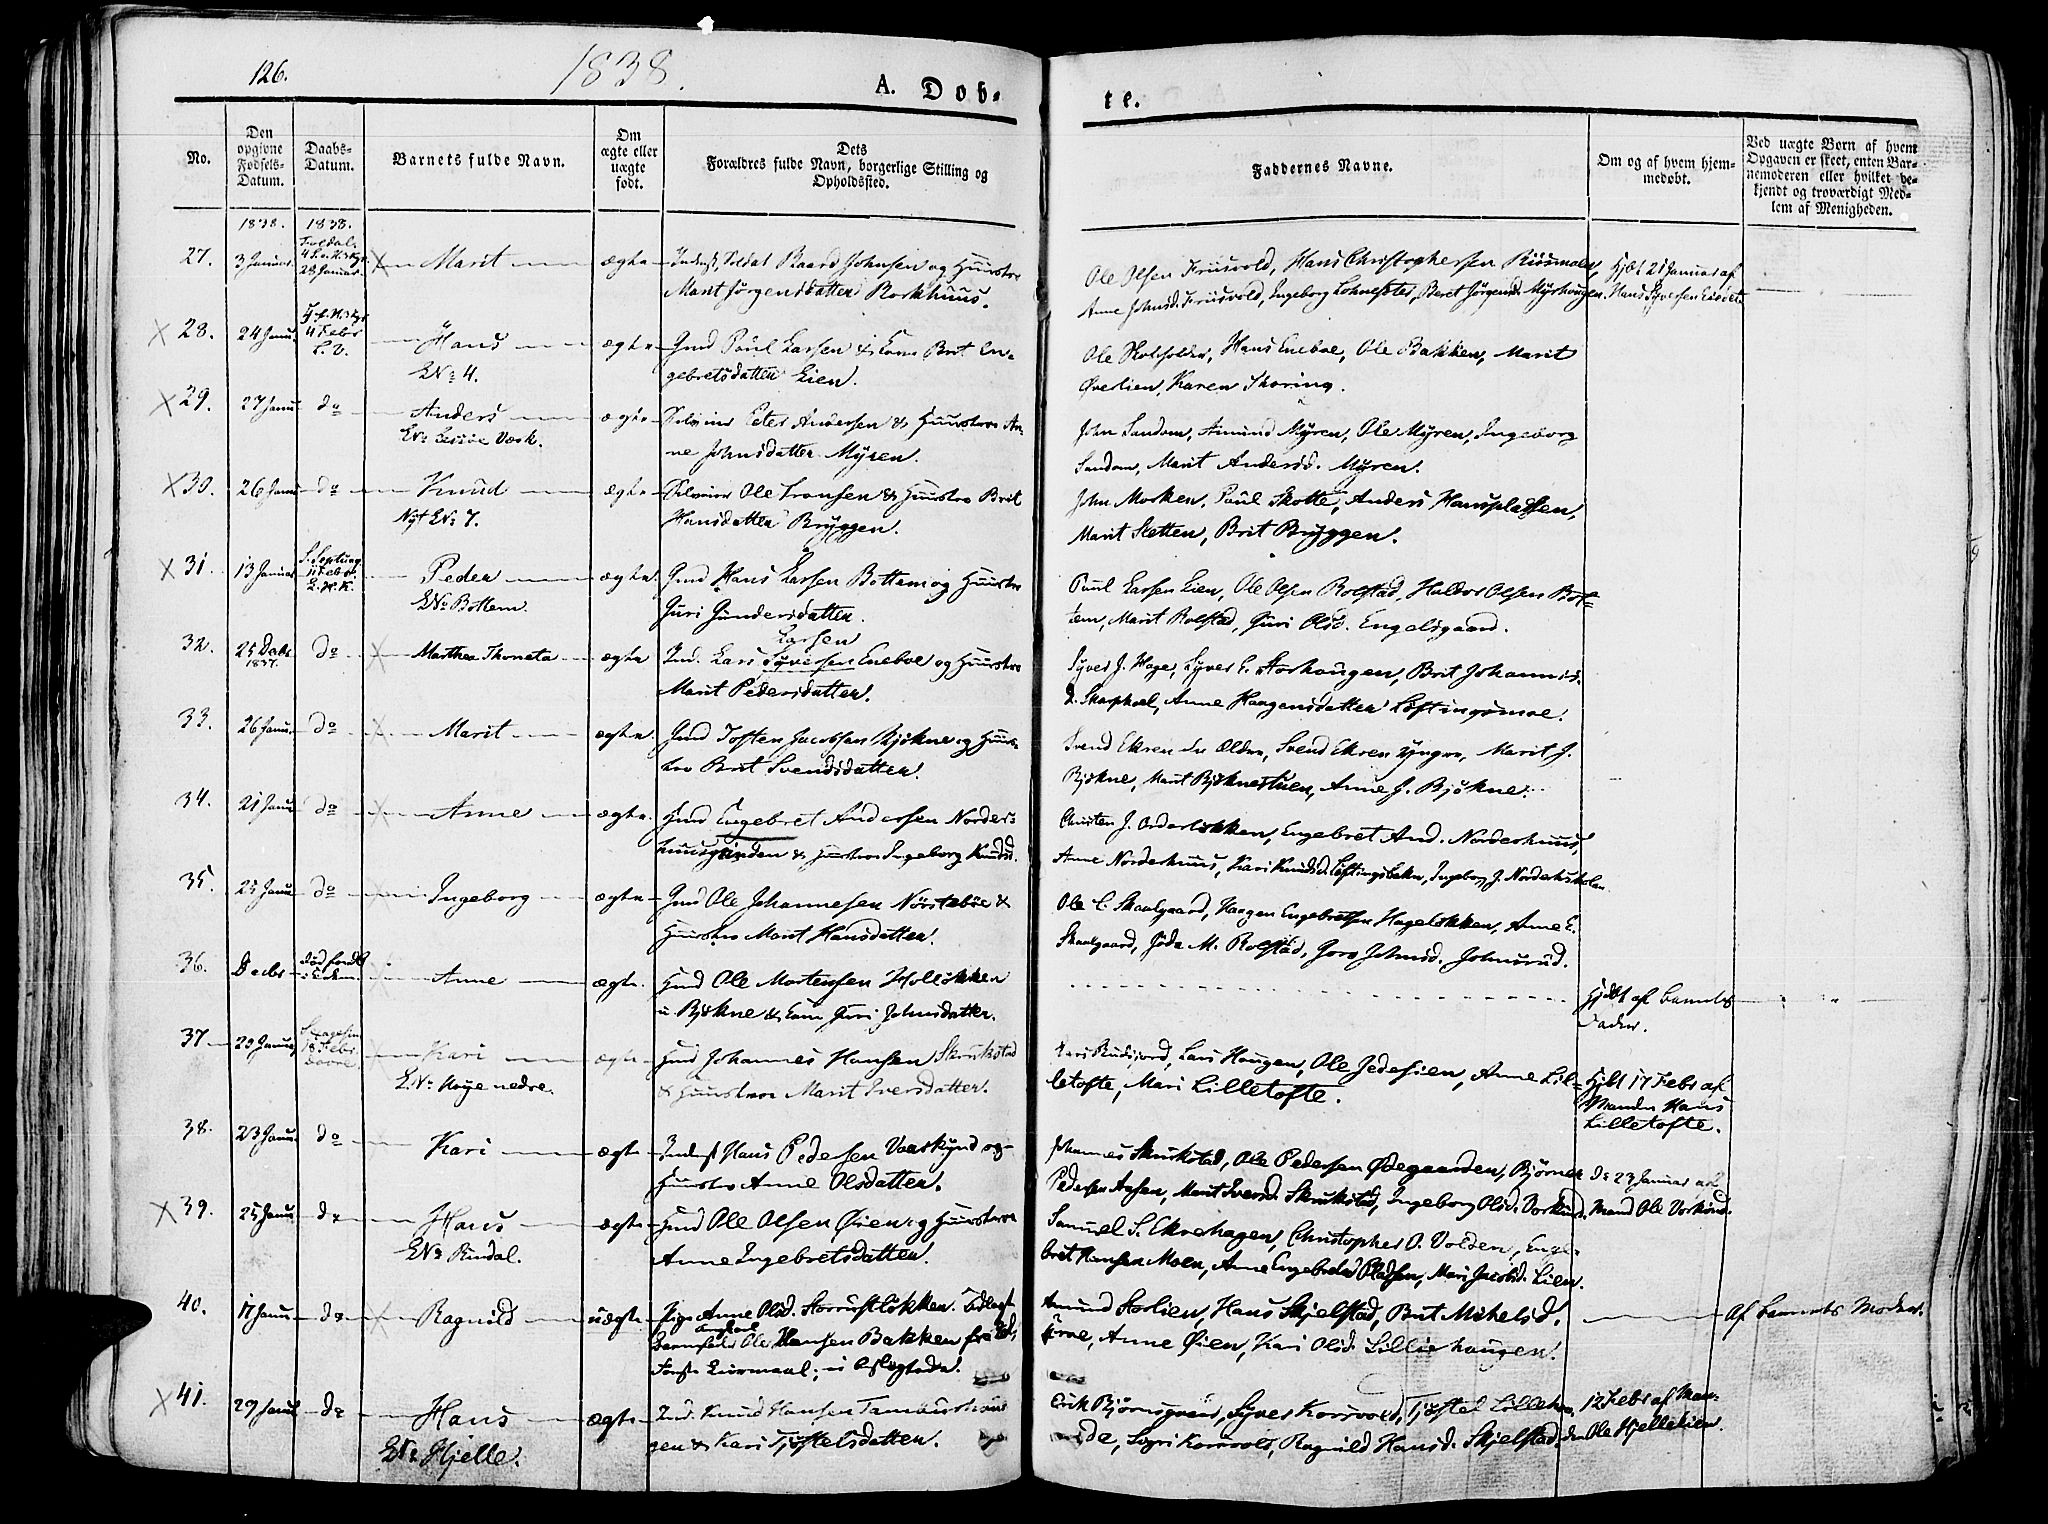 126.
1838.
A. Döb-
te.
No.
Den opgivne Fødsels-Datum.
Daabs-Datum.
Barnets fulde Navn.
Om ægte eller uægte født.
Dets Forældres fulde Navn, borgerlige Stilling og Opholdssted.
Faddernes Navne.
Om og af hvem hjem-medøbt.
Ved uægte Børn af hvem Opgaven er skeet, enten Bar-nemoderen eller hvilket be-kjendt og troværdigt Med-lem af Menigheden.
1838. 1838.
27. 3 Januar 28 Januar Marit ægte Soldat Baard Johnsen og Huustroe
Marit Jørgensdatter Borkhuus.
Ole Olsen Friisvold, Hans Christophersen Riisemoen,
Anne Johnsd. Friisvold, Ingeborg Beret Jørgensd. Myrhougen.
Hjdt 21 Januar af
Hans Syversen
28. 24 Janu 4 Febr Hans ægte Gmd Poul Larsen & Kone Brit En-
gebretsdatter Lien.
E No 4.
Ole Hans Eneboe, Ole Bakken, Marit
Øverlien, Karen Skoring.
29. 27 Janu do Anders ægte Selveier Peter Andersen & Huustroe An-
ne Johnsdatter Myren.
Værk.
John Sandom, Amund Myren, Ole Myren, Ingeborg
Sandom, Marit Andersd. Myren.
30. 26 Janu do Knud ægte Selveier Ole & Huustro Brit
Hansdatter Bryggen.
Nyt E No 7.
John Morken, Paul Skotte, Anders Hansplassen,
Marit Sletten, Brit Bryggen.
31. 13 Januar S. Septuag. 11 Febr Peder ægte Gmd Hans Larsen Bottem og Huustro
Guri Gundersdatter.
E No Bottem.
Paul Larsen Lien, Ole Olsen Rolstad, Halvor Olsen Bot-
tem, Marit Rolstad, Guri Olsd. Engelsgaard.
32. 25 Decbr 1837. do Marthea Thoneta ægte Ind. Lars Syversen Eneboe og Huustroe
Larsen
Marit Pedersdatter.
Syver J. Hage, Syver E. Storhougen, Brit Johannis-
d. Skarphoel, Anne Haagensdatter Løftingsmoe.
33. 26 Janu. do Marit ægte Gmd Tosten Jacobsen Bjøkne og Huus-
tro Brit Svendsdatter.
Svend Ekren den Ældre, Svend Ekren yngre, Marit J.
Bjøkne, Marit Bjøknestuen, Anne J. Bjøkne.
34. 21 Janu do Anne ægte Hmd Engebret Andersen Norder-
huusgrinden & Huustroe Ingeborg Knudsd.
Christen J. Engebret And. Norderhuus,
Anne Norderhuus, Kari Knudsd. Ingeborg J.
35. 25 Janu do Ingeborg ægte Gmd Ole Johannesen Nørsteboe &
Huustro Marit Hansdatter.
Ole C. Skaalgaard, Haagen Engebretsen Hageløkken, Anne E.
Skaalgaard, M. Rolstad, Goro Johnsd. Johnsrud.
36. Decbr Anne ægte. Hmd Ole Mortensen
u. Bjøkne & Kone Guri Johnsdatter.
Hjdøbt af Barnets
Fader.
37 29 Januar 18 Febr Kari ægte Hmd Johannes Hansen Skrukstad
& Huustroe Marit Iversdatter.
E No Høye nedre.
Lars Haugen, Ole Anne Lil-
letofte, Mari Lilletofte.
Hjdt 17 Febr af
Manden Hans
Lilletofte.
38. 23 Janu. do Kari ægte Inderst Hans Pedersen Vaarkynd og
Huustro Anne Olsdatter.
Johannes Skrukstad, Ole Pedersen Ødegaarden, Bjørner
Pedersen Aasen, Marit Iversd. Skrukstad, Ingeborg Olsd.
do 23 Januar af
Mand Ole
39. 25 Janu do Hans ægte Hmd Ole Olsen Øien og Huustroe
Anne Ingebretsdatter.
E No Rindal.
Samuel S. Ekrehagen, Christopher O. Volden, Enge-
bret Hansen Moen, Anne Engebretsd Pladsen, Mari Jacobsd. Lien.
40. 17 Janu do Ragnild uægte Pige Anne Olsd. Storrustløkken. Udlagt
Barnefader Ole Hansen Bakken
ungkarl
første Leiermaal; i
Amund Storlien, Hans Skjelstad, Brit Mikelsd.
Anne Øien, Kari Olsd. Lilliehaugen.
Af Barnets Moder.
41. 29 Janu do Hans ægte Ind. Knud Hansen
gen & Kari Tjøstelsdatter.
E No Hjelle.
Erik Syver Korsvold, Tjøstel
Sigri Korsvold, Ragnild Hansd. Skjelstad.
12 Febr af Man-
den Ole Hjellelien.